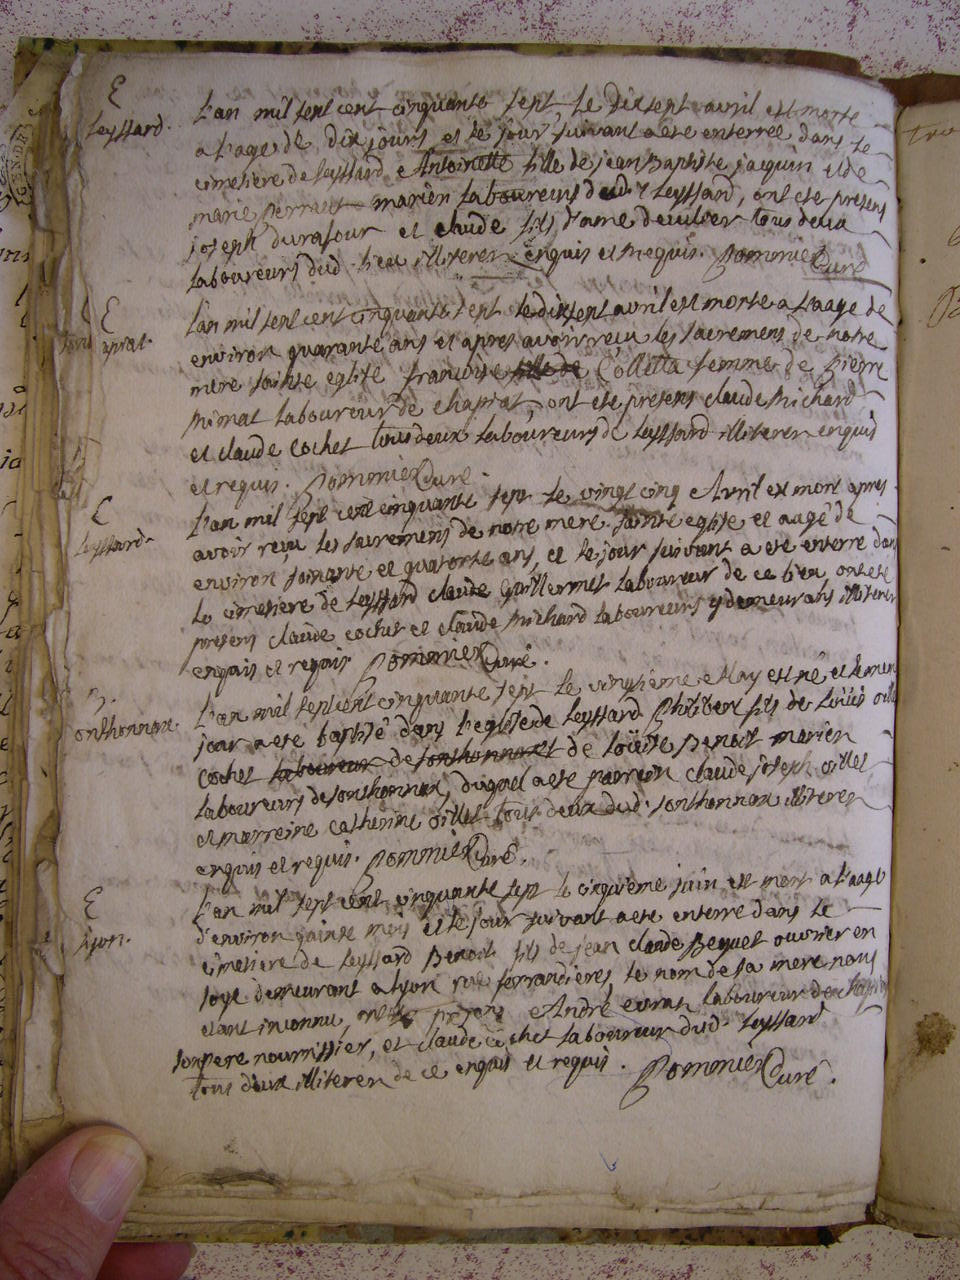 E
Leyssard.
L'an mil sept cent cinquante sept le dixsept avril est morte
a l'age de dix jours et le jour suivant a ete enterrée dans le
cimetiere de Leyssard Antoinette fille de jean Baptiste jacquin et de
marie perret mariés laboureurs dud. Leyssard, ont ete presens
joseph durafour et claude fils d'ame devulver tous deux
laboureurs dud. lieu illiteren enquis et requis. Pommier Curé
E
L'an mil sept cent cinquante sept le dixsept avril est morte a l'aage de
environ quarante ans et apres avoir reçu les sacremens de notre
mere sainte eglise françoise fille de Colletta femme de pierre
mimat laboureur de chaprat, ont ete presens claude Michard
et claude Cochet tous deux laboureurs de Leyssard illiteren enquis
et requis. Pommier Curé.
E
Leyssard.
L'an mil sept cent cinquante sept le vingt cinq Avril est mort apres
avoir reçu les sacremens de notre mere sainte eglise et aagé de
environ soixante et quatorse ans, et le jour suivant a ete enterré dans
le cimetiere de Leyssard claude Guillermet laboureur de ce lieu, ont ete
presens claude cochet et claude Michard laboureurs y demeurans illiteren
enquis et requis Pommier Curé.
onthonnax.
L'an mil sept cent cinquante sept le vingtième May est né et le meme
jour a ete baptisé dans l'eglise de Leyssard Philibert fils de Loüis oillet
cochet laboureur de sonthonnax et de loüise Benoit mariés
laboureurs de sonthonnax, duquel a ete parrein claude joseph oillet
et marreine catherine oillet tous deux dud. sonthonnax illiteren
enquis et requis. Pommier Curé.
E
Lyon.
L'an mil sept cent cinquante sept le cinquième juin est mort a l'aage
d'environ quinse mois et le jour suivant a ete enterré dans le
cimetiere de Leyssard Benoit fils de jean claude Bequet ouvrier en
soye demeurant a Lyon rue ferrandieres, le nom de sa mere nous
etant inconnu, ont ete presens André laboureur de
son pere nourrissier, et claude cochet laboureur dud. Leyssard
tous deux illiteren de ce enquis et requis. Pommier Curé.